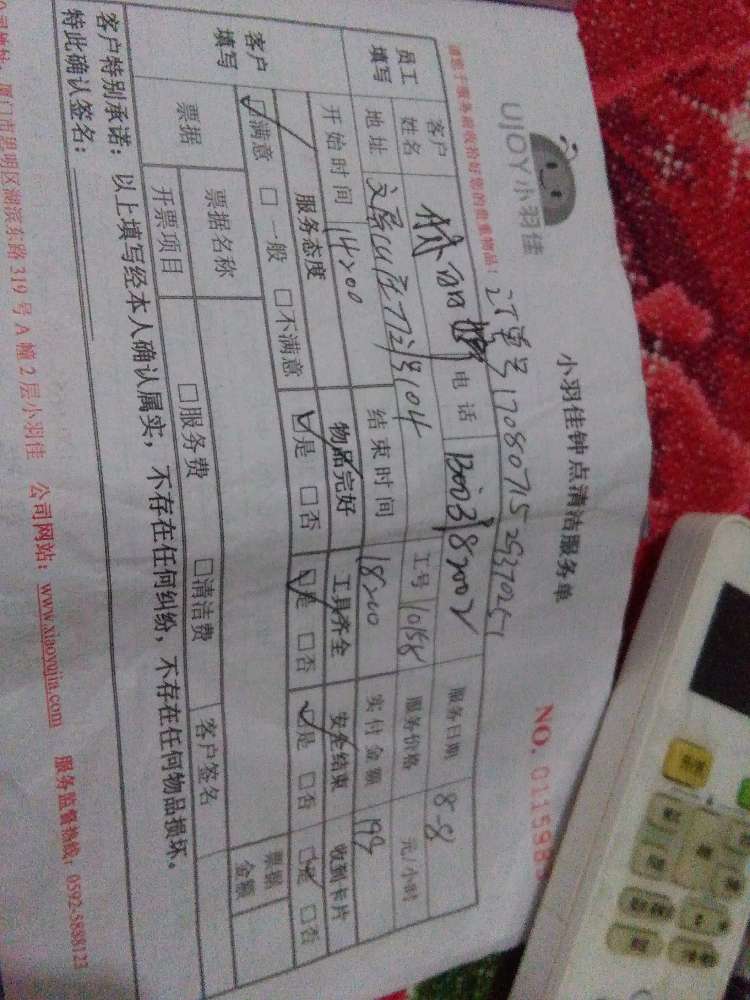 UJOY小羽佳
小羽佳钟点清洁服务单
NO. 011598
请您于服务前收拾好您的贵重物品!
订单号1708071529370251
员工填写
客户姓名
电话
服务日期 8-8
地址
工号 10158
服务价格 元/小时
开始时间 14:00
结束时间 18:00
实付金额 199
客户填写
服务态度 物品完好 工具齐全 安全结束 收到卡片
☑满意 □一般 □不满意 ☑是 □否 ☑是 □否 ☑是 □否 ☑是 □否
票据
票据名称 □服务费 □清洁费
票据金额
开票项目
客户签名
客户特别承诺:以上填写经本人确认属实,不存在任何纠纷,不存在任何物品损坏。
特此确认签名:
厦门市思明区湖滨东路319号A幢2层小羽佳 公司网站:www.xiaoyujia.com 服务监督热线:0592-5888123